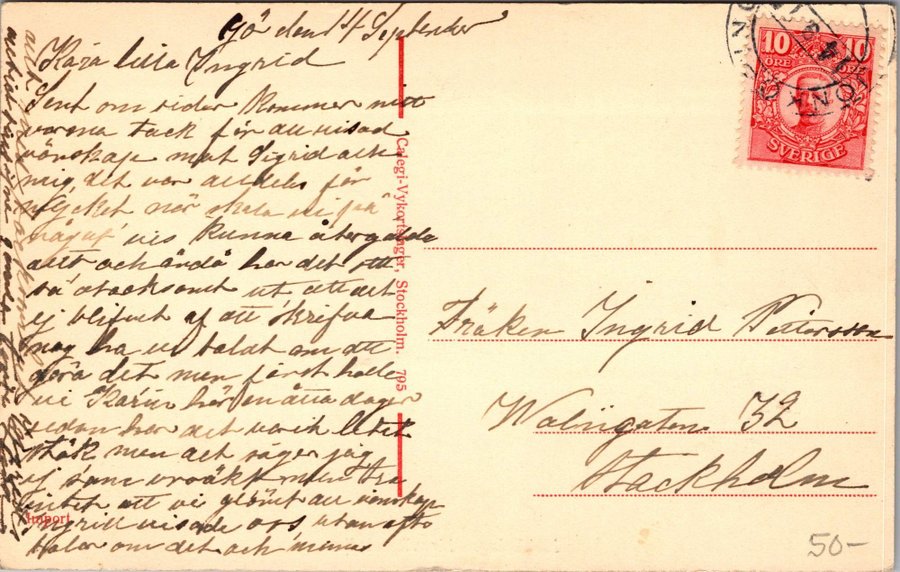 den 14 September
Kära lilla Ingrid
Sent om sider kommer mitt
varma tack för all visad
vänskap mot Sigrid och
mig, det var alldeles för
mycket när skola vi få
något vis kunna återgälda
allt och ändå har det sett
så otacksamt ut att det
ej blifvit af att skrifva
nog ha vi talat om att
göra det men först hade
vi Karin här en åtta dagar
sedan har det varit
stök men det säger jag
ej som ursäkt men tro
intet att vi glömt all vänskap
Ingrid visade oss utan ofta
talar om det och minns
Import
Calegi-Vykortslager, Stockholm. 795
10 10
ÖRE
SVERIGE
Fröken Ingrid Pettersson
Walingatan 32
Stockholm
50-